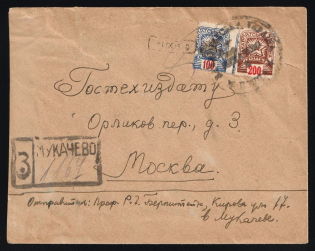 100 200
Гостехиздату
Орликов пер., д. 3
Москва.
З МУКАЧЕВО
Отправитель: Проф. Р. Бернштейн, Кирова ул.
в Мукачеве.